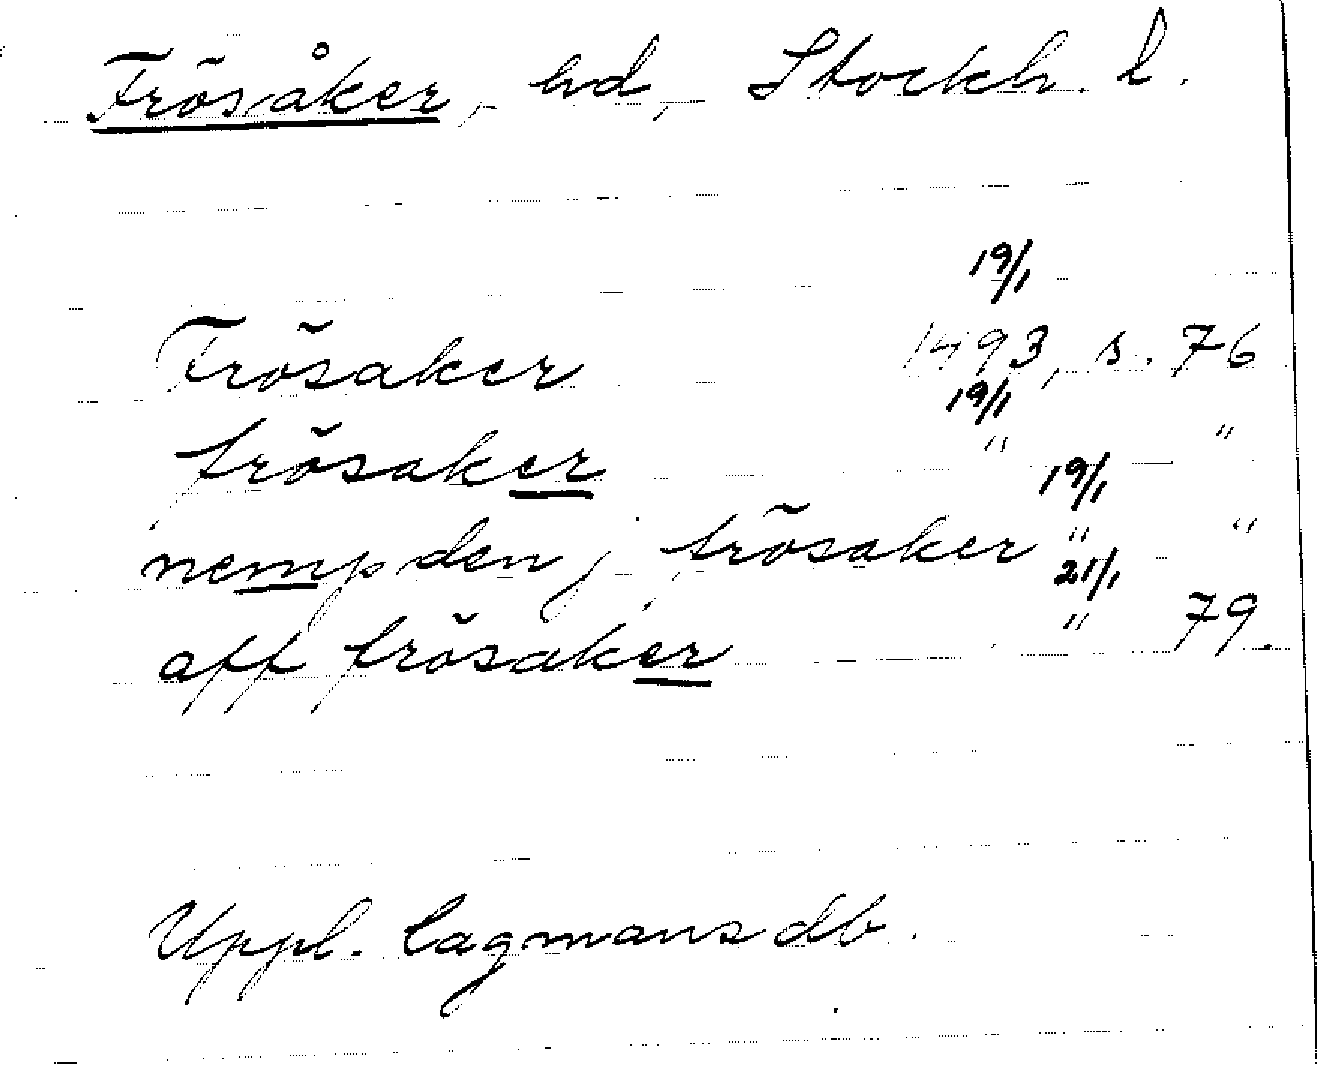 Frösåker, hd, Stockh. l.
19/1
Frösaker 1493, s. 76
19/1
frösaker " "
19/1
nempden j frösaker " "
21/1
aff frösaker " 79.
Uppl. lagmansdb.